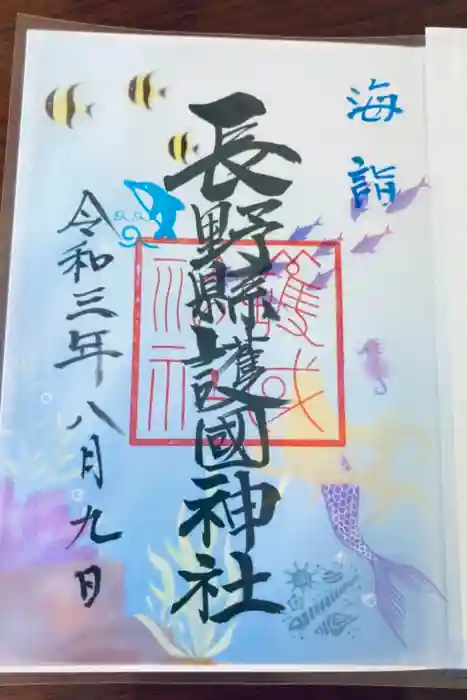 海詣
長野縣護國神社
令和三年八月九日